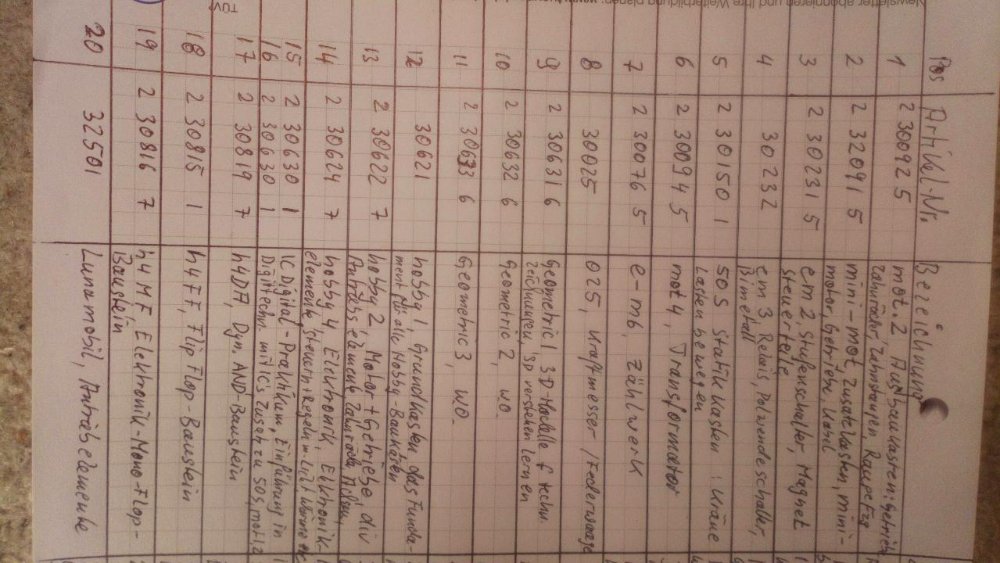 Newsletter abonnieren und Ihre Weiterbildung planen:
Pos Artikel-Nr. Bezeichnung
1 2 30092 5 mot. 2 Ausbaukasten: Getriebe
Zahnräder, Zahnstangen, Raupefzg
2 2 32091 5 mini-mot, Zusatzkasten, mini-
motor, Getriebe, Kabel
3 2 30231 5 e-m 2 Stufenschalter, Magnet
steuerteile
4 30232 em 3 Relais, Polwendeschalter,
Bimetall
5 2 30150 1 50 S Statikkasten: Kräne
Lasten bewegen
6 2 30094 5 mot 4, Transformator
7 2 30076 5 e-m6, Zählwerk
8 30025 025, Kraftmesser / Federwaage
9 2 30631 6 Geometric 1 3D-Modelle f techn
Zeichnungen, 3D verstehen lernen
10 2 30632 6 Geometric 2, wo
11 2 30633 6 Geometric 3, wo
12 30621 hobby 1, Grundkasten das Funda-
ment für alle Hobby-Baukästen
13 2 30622 7 hobby 2, Motor + Getriebe, div
Antriebselemente Zahnräder
14 2 30624 7 hobby 4, Elektronik, Elektronik-
elemente, Steuern Regeln m. Licht Wärme
15 2 30630 1 IC Digital-Praktikum, Einführung in
16 2 30630 1 Digitaltechn. mit ICs Zusatz zu 50S, mot 1 2
17 2 30819 7 h4DA, Dyn. AND-Baustein
18 2 30815 1 h4FF, Flip Flop-Baustein
19 2 30816 7 h4MF Elektronik-Mono-Flop-
Baustein
20 32501 Lunamobil, Antriebelemente
TÜV